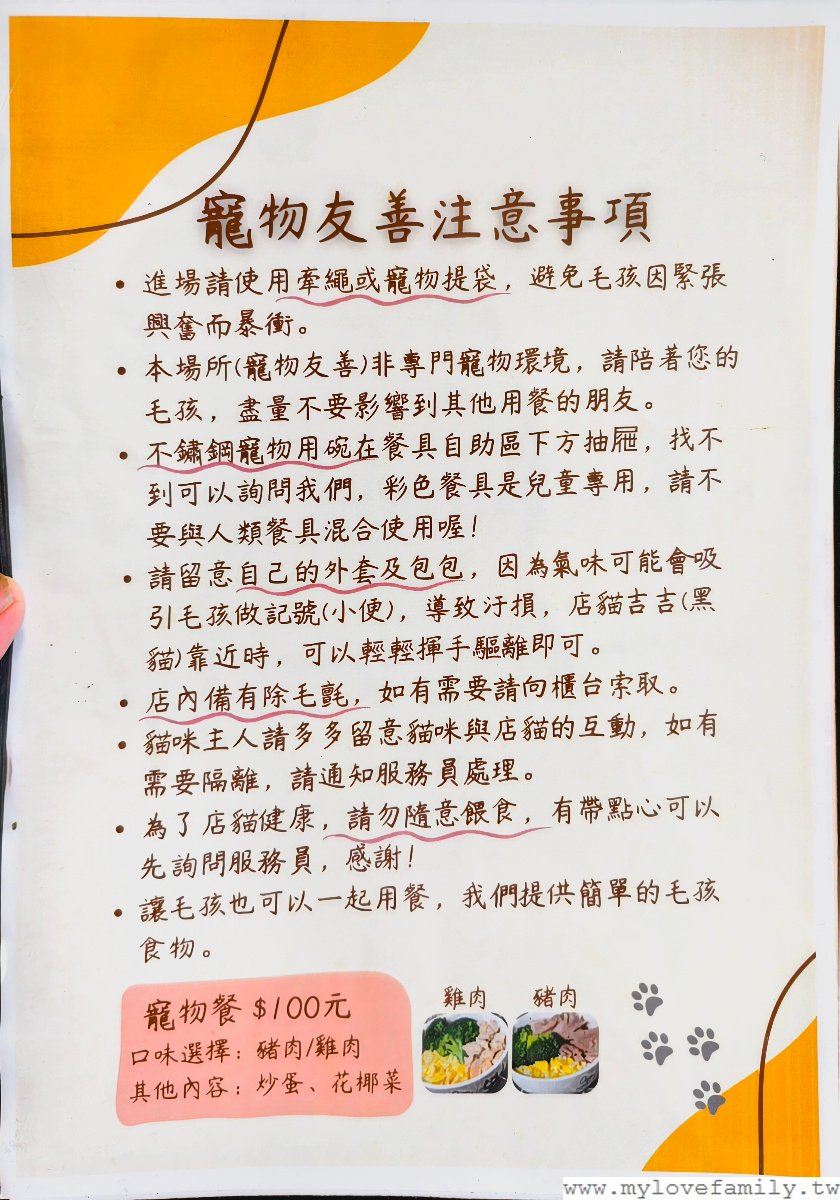 寵物友善注意事項
• 進場請使用牽繩或寵物提袋，避免毛孩因緊張
興奮而暴衝。
• 本場所(寵物友善)非專門寵物環境，請陪著您的
毛孩，盡量不要影響到其他用餐的朋友。
• 不鏽鋼寵物用碗在餐具自助區下方抽屜，找不
到可以詢問我們，彩色餐具是兒童專用，請不
要與人類餐具混合使用喔！
• 請留意自己的外套及包包，因為氣味可能會吸
引毛孩做記號(小便)，導致汙損，店貓吉吉(黑
貓)靠近時，可以輕輕揮手驅離即可。
• 店內備有除毛氈，如有需要請向櫃台索取。
• 貓咪主人請多多留意貓咪與店貓的互動，如有
需要隔離，請通知服務員處理。
• 為了店貓健康，請勿隨意餵食，有帶點心可以
先詢問服務員，感謝！
• 讓毛孩也可以一起用餐，我們提供簡單的毛孩
食物。
寵物餐 $100元
口味選擇：豬肉/雞肉
其他內容：炒蛋、花椰菜
雞肉 豬肉
www.mylovefamily.tw